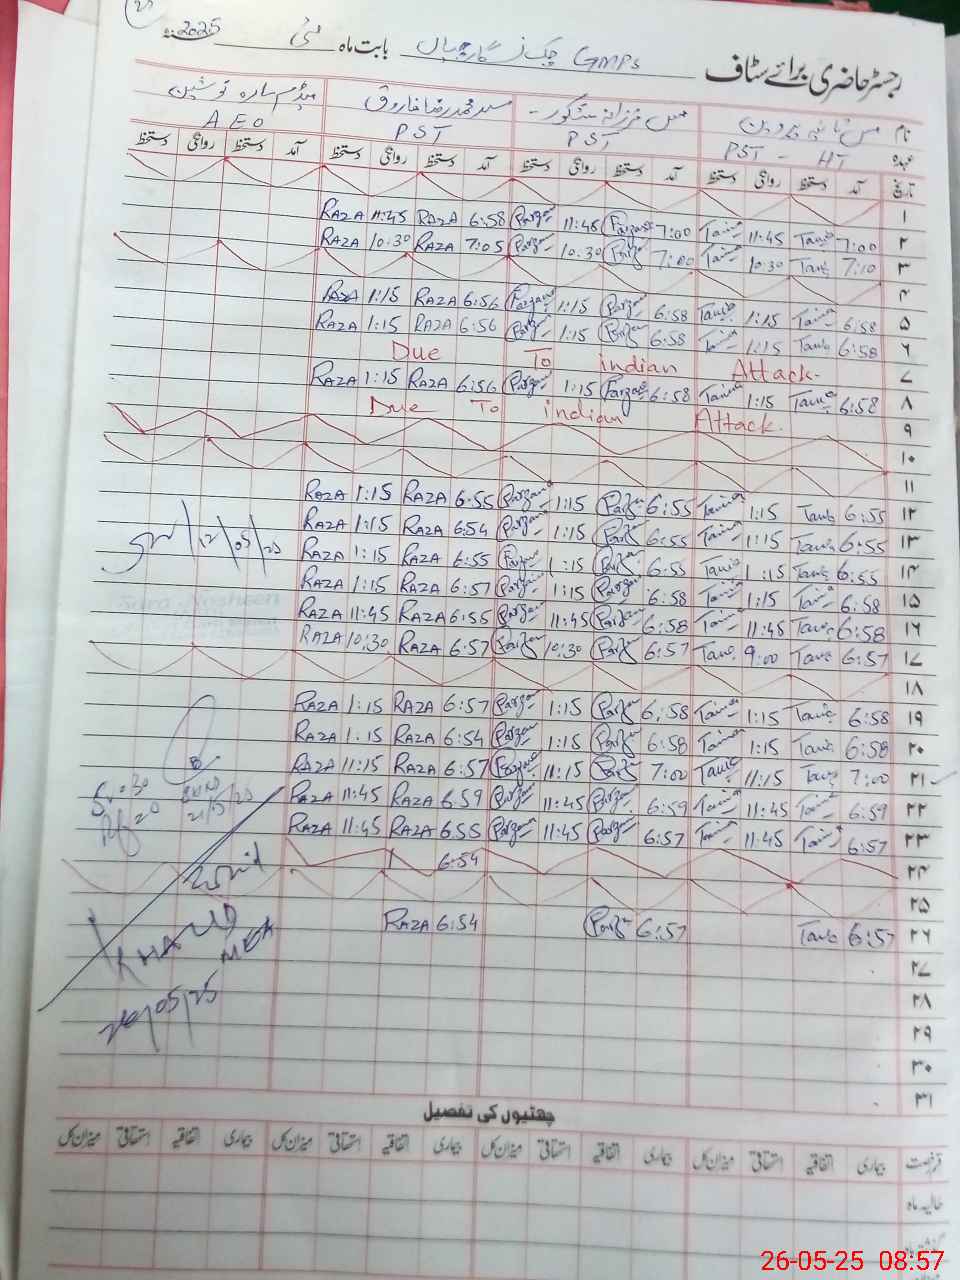 رجسٹر حاضری برائے سٹاف GMPS چک بابت ماہ مئی 2025ء
نام مس فرزانہ شکور سید محمد رضا فاروق میڈم سارہ نوشین
عہدہ PST - HT PST PST AEO
تاریخ آمد دستخط روانگی دستخط آمد دستخط روانگی دستخط آمد دستخط روانگی دستخط آمد دستخط روانگی دستخط
۱
۲ 7:00 Tania 11:45 Tania 7:00 Farzana 11:45 Farzana 6:58 RAZA 11:45 RAZA
۳ 7:10 Tania 10:30 Tania 7:00 Farzana 10:30 Farzana 7:05 RAZA 10:30 RAZA
۴
۵ 6:58 Tania 1:15 Tania 6:58 Farzana 1:15 Farzana 6:56 RAZA 1:15 RAZA
۶ 6:58 Tania 1:15 Tania 6:58 Farzana 1:15 Farzana 6:56 RAZA 1:15 RAZA
۷ Due To indian Attack.
۸ 6:58 Tania 1:15 Tania 6:58 Farzana 1:15 Farzana 6:56 RAZA 1:15 RAZA
۹ Due To indian Attack.
۱۰
۱۱
۱۲ 6:55 Tania 1:15 Tania 6:55 Farzana 1:15 Farzana 6:55 RAZA 1:15 RAZA
۱۳ 6:55 Tania 1:15 Tania 6:55 Farzana 1:15 Farzana 6:54 RAZA 1:15 RAZA
12/05/25
۱۴ 6:55 Tania 1:15 Tania 6:55 Farzana 1:15 Farzana 6:55 RAZA 1:15 RAZA
۱۵ 6:58 Tania 1:15 Tania 6:58 Farzana 1:15 Farzana 6:57 RAZA 1:15 RAZA
Sara Nosheen
۱۶ 6:58 Tania 11:45 Tania 6:58 Farzana 11:45 Farzana 6:55 RAZA 11:45 RAZA
۱۷ 6:57 Tania 9:00 Tania 6:57 Farzana 10:30 Farzana 6:57 RAZA 10:30 RAZA
۱۸
۱۹ 6:58 Tania 1:15 Tania 6:58 Farzana 1:15 Farzana 6:57 RAZA 1:15 RAZA
۲۰ 6:58 Tania 1:15 Tania 6:58 Farzana 1:15 Farzana 6:54 RAZA 1:15 RAZA
۲۱ 7:00 Tania 11:15 Tania 7:00 Farzana 11:15 Farzana 6:57 RAZA 11:15 RAZA
۲۲ 6:59 Tania 11:45 Tania 6:59 Farzana 11:45 Farzana 6:59 RAZA 11:45 RAZA
21/5/25
۲۳ 6:57 Tania 11:45 Tania 6:57 Farzana 11:45 Farzana 6:55 RAZA 11:45 RAZA
۲۴ 6:54
۲۵
۲۶ 6:57 Tania 6:57 Farzana 6:54 RAZA
KHALID MEA
۲۷
۲۸
26/05/25
۲۹
۳۰
۳۱
چھٹیوں کی تفصیل
قسم رخصت بیماری اتفاقیہ استحقاقی میزان کل بیماری اتفاقیہ استحقاقی میزان کل بیماری اتفاقیہ استحقاقی میزان کل بیماری اتفاقیہ استحقاقی میزان کل
حالیہ ماہ
گزشتہ ماہ
26-05-25 08:57